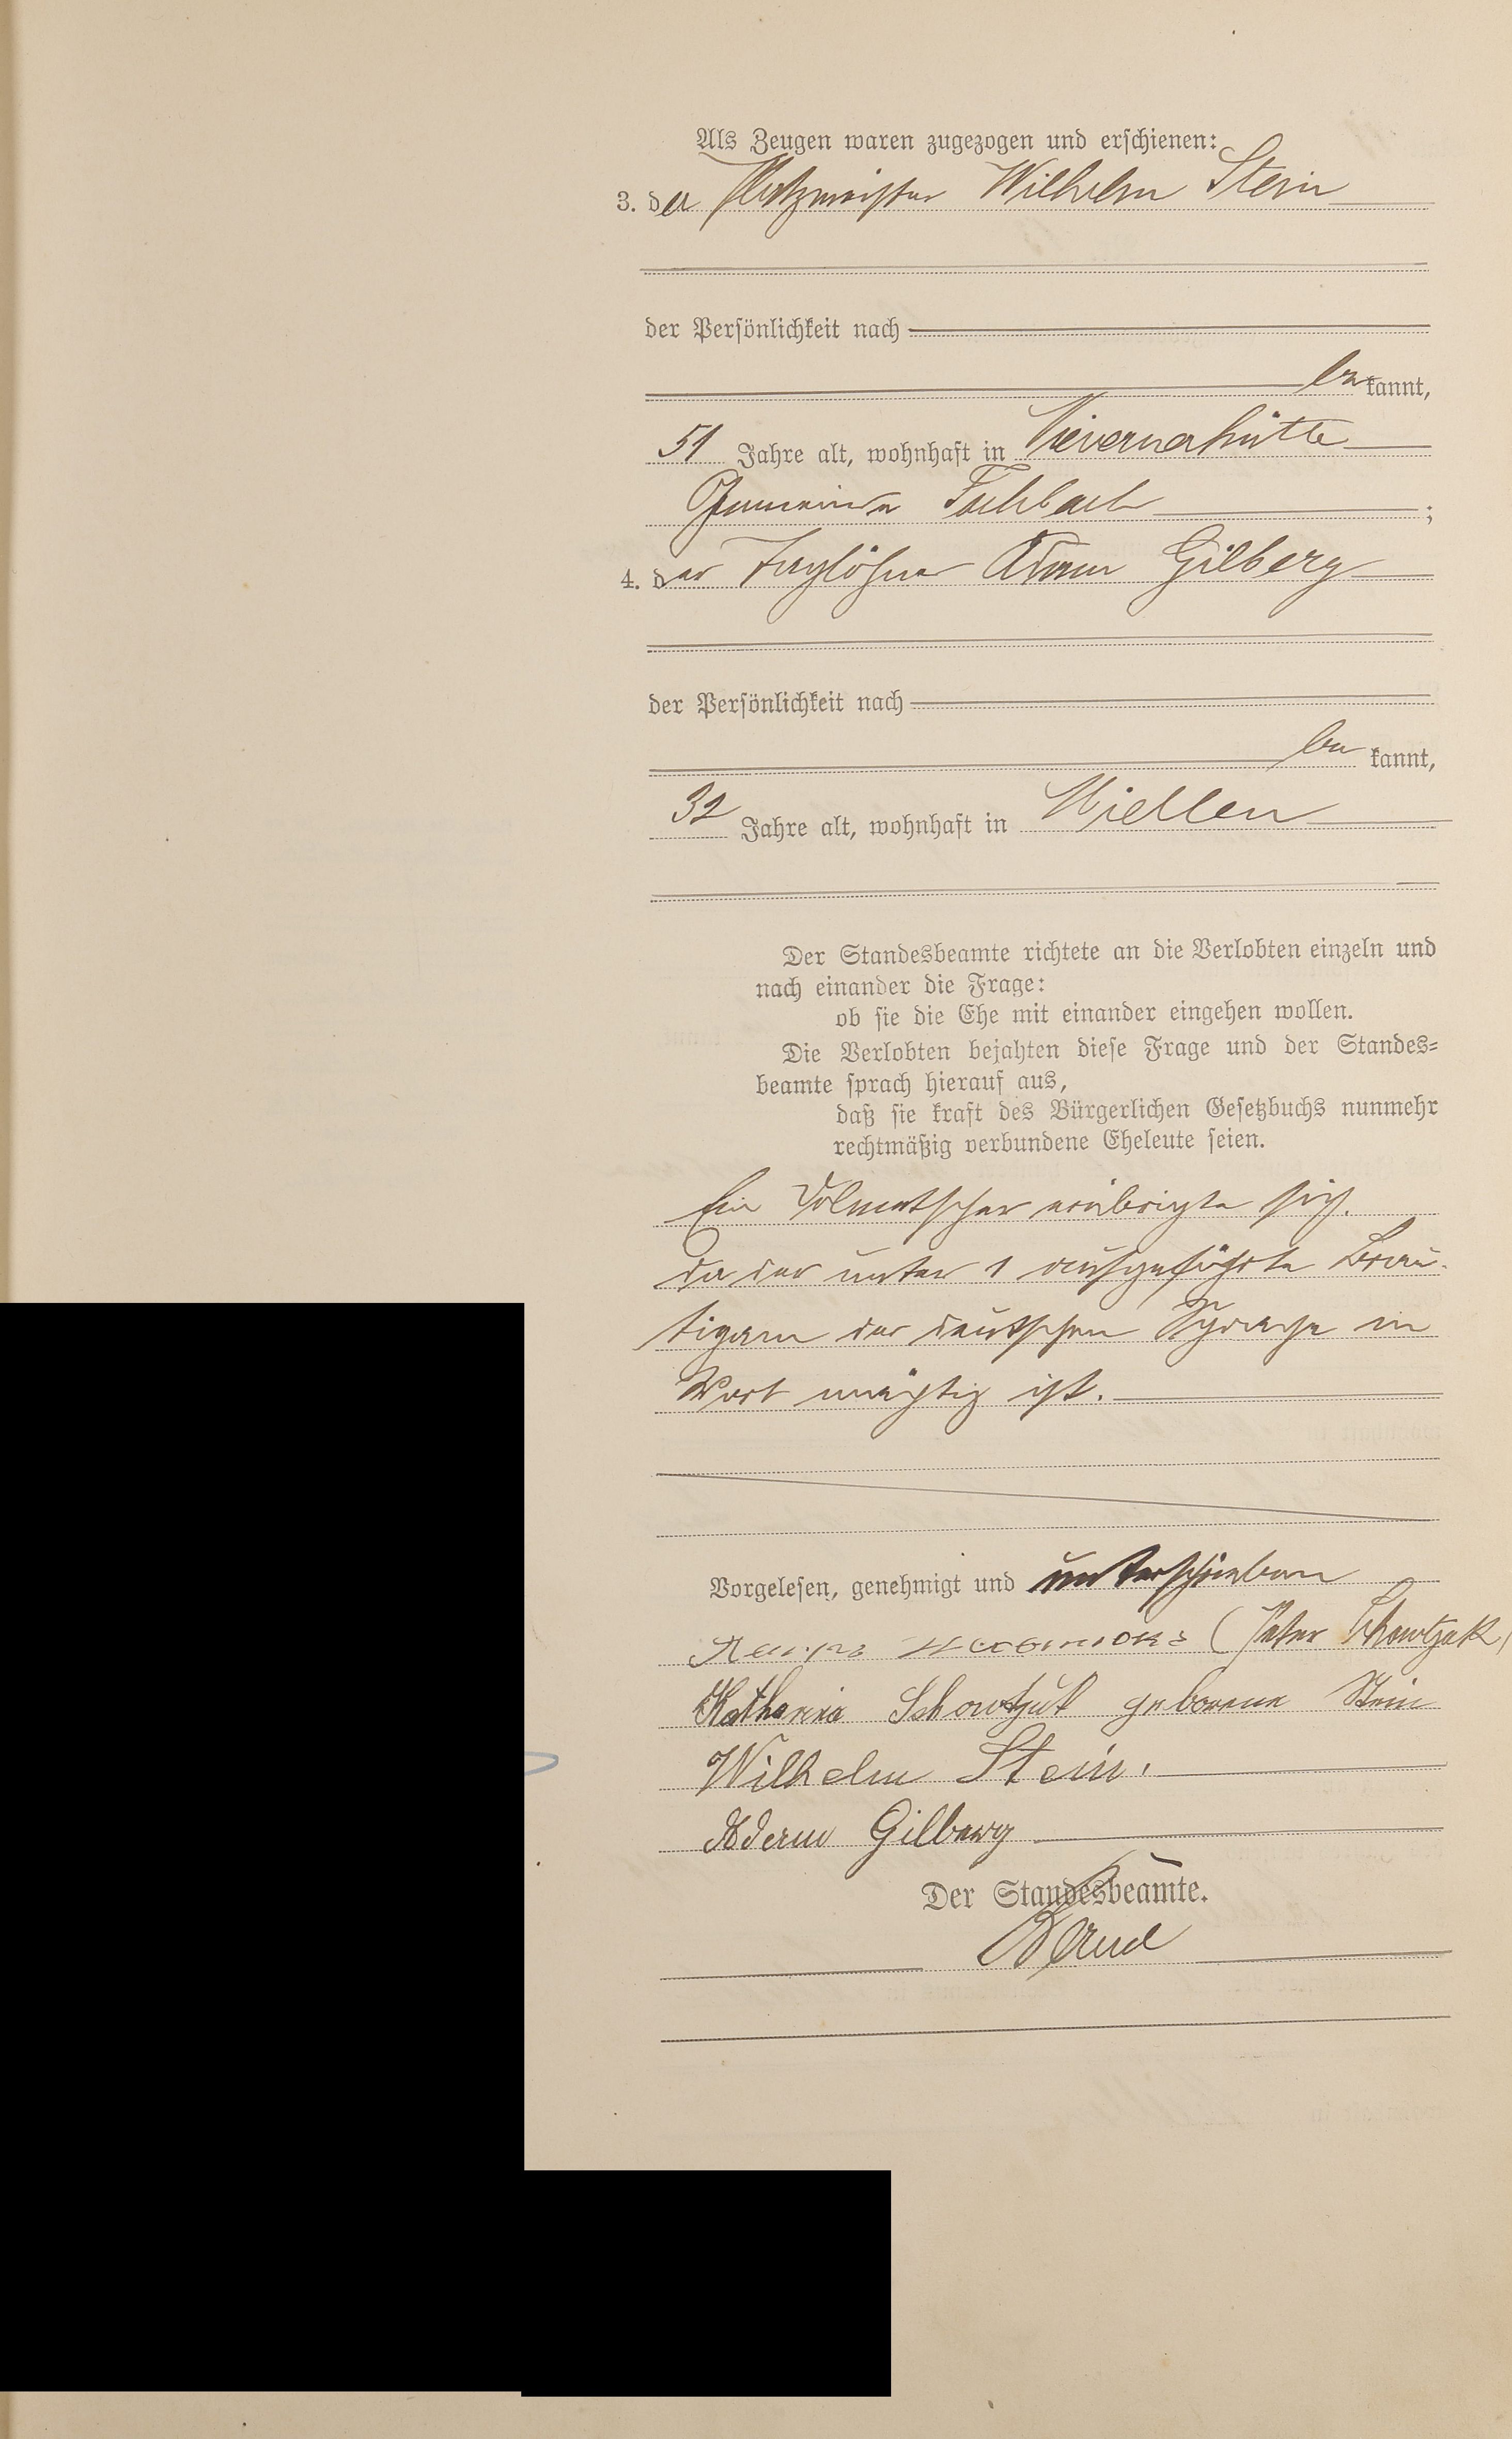 Als Zeugen waren zugezogen und erschienen:
3. der Platzmeister Wilhelm Stein
der Persönlichkeit nach
be kannt,
51 Jahre alt, wohnhaft in Nievernerhütte
Gemeinde Fachbach ;
4. der Taglöhner Adam Gilberg
der Persönlichkeit nach
be kannt,
32 Jahre alt, wohnhaft in Miellen
Der Standesbeamte richtete an die Verlobten einzeln und
nach einander die Frage:
ob sie die Ehe mit einander eingehen wollen.
Die Verlobten bejahten diese Frage und der Standes=
beamte sprach hierauf aus,
daß sie kraft des Bürgerlichen Gesetzbuchs nunmehr
rechtmäßig verbundene Eheleute seien.
Ein Dolmetscher erübrigte sich.
da der unter 1 aufgeführte Bräu-
tigam der deutschen Sprache in
Wort mächtig ist.
Vorgelesen, genehmigt und unterschrieben
(Peter
Katharina geborene Stein
Wilhelm Stein.
Adam Gilberg
Der Standesbeamte.